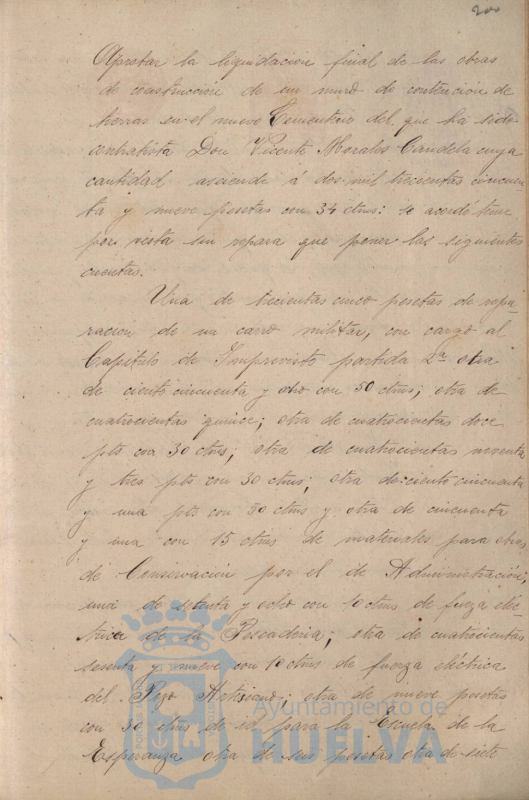 200
Aprobar la liquidacion final de las obras
de construccion de un muro de contencion de
tierras en el nuevo Cementerio del que ha sido
contratista Don Vicente Morales Candela cuya
cantidad asciende á dos mil trecientas cincuen
ta y nueve pesetas con 34 ctms: se acordó tener
por vista sin reparo que poner las siguientes
cuentas.
Una de trecientas cinco pesetas de repa-
racion de un carro militar, con cargo al
Capitulo de Imprevisto partida 2ª otra
de ciento cincuenta y ocho con 50 ctms; otra de
cuatrocientas quince; otra de cuatrocientas doce
pts con 30 ctms; otra de cuatrocientas noventa
y tres pts con 30 ctms; otra de ciento cincuenta
y una pts con 50 ctms y otra de cincuenta
y una con 15 ctms de materiales para obras
de Conservacion por el de Administración;
una de setenta y ocho con 10 ctms de fuerza eléc
trica de la Pescaderia; otra de cuatrocientas
sesenta y nueve con 10 ctms de fuerza eléctrica
del Pozo Artesiano; otra de nueve pesetas
con 30 ctms de id para la Escuela de la
Esperanza otra de seis pesetas otra de siete
Ayuntamiento de
HUELVA